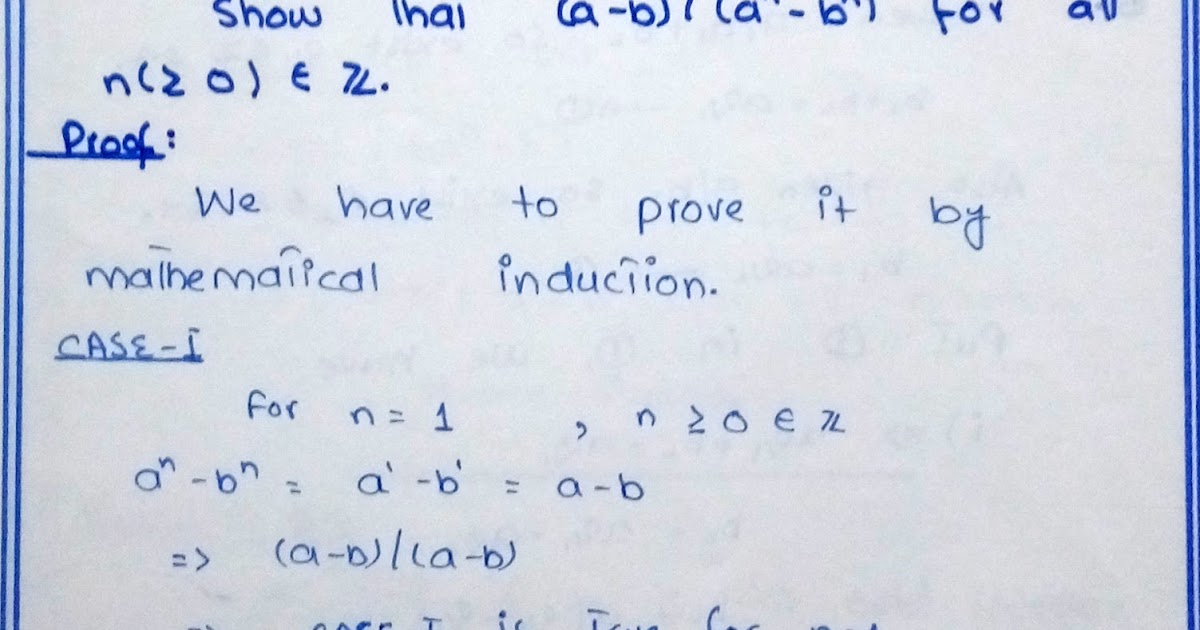 Show that (a-b) / (aⁿ - bⁿ) for all
n(≥ 0) ∈ ℤ.
Proof:
We have to prove it by
mathematical induction.
CASE-I
For n = 1 , n ≥ 0 ∈ ℤ
aⁿ - bⁿ = a¹ - b¹ = a - b
=> (a-b) / (a-b)
=> case I is True for